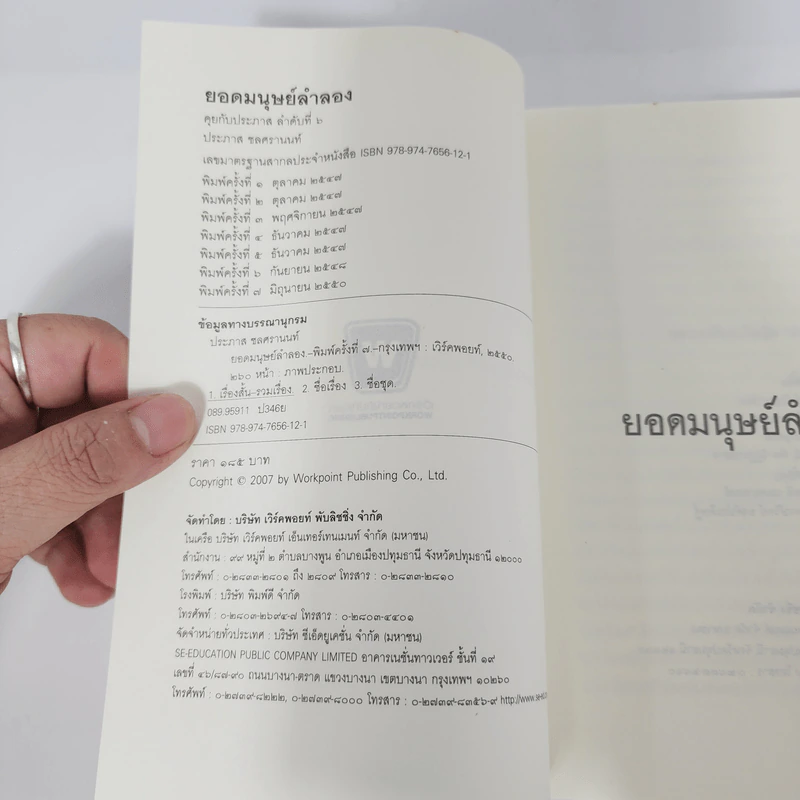 ยอดมนุษย์ลำลอง
คุยกับประภาส ลำดับที่ ๖
ประภาส ชลศรานนท์
เลขมาตรฐานสากลประจำหนังสือ ISBN 978-974-7656-12-1
พิมพ์ครั้งที่ ๑ ตุลาคม ๒๕๔๗
พิมพ์ครั้งที่ ๒ ตุลาคม ๒๕๔๗
พิมพ์ครั้งที่ ๓ พฤศจิกายน ๒๕๔๗
พิมพ์ครั้งที่ ๔ ธันวาคม ๒๕๔๗
พิมพ์ครั้งที่ ๕ ธันวาคม ๒๕๔๗
พิมพ์ครั้งที่ ๖ กันยายน ๒๕๔๘
พิมพ์ครั้งที่ ๗ มิถุนายน ๒๕๕๐
ข้อมูลทางบรรณานุกรม
ประภาส ชลศรานนท์
ยอดมนุษย์ลำลอง.–พิมพ์ครั้งที่ ๗.–กรุงเทพฯ : เวิร์คพอยท์, ๒๕๕๐.
๒๖๐ หน้า : ภาพประกอบ.
1. เรื่องสั้น–รวมเรื่อง. 2. ชื่อเรื่อง 3. ชื่อชุด.
089.95911 ป346ย
ISBN 978-974-7656-12-1
ราคา ๑๘๕ บาท
Copyright © 2007 by Workpoint Publishing Co., Ltd.
จัดทำโดย : บริษัท เวิร์คพอยท์ พับลิชชิ่ง จำกัด
ในเครือ บริษัท เวิร์คพอยท์ เอ็นเทอร์เทนเมนท์ จำกัด (มหาชน)
สำนักงาน : ๙๙ หมู่ที่ ๒ ตำบลบางพูน อำเภอเมืองปทุมธานี จังหวัดปทุมธานี ๑๒๐๐๐
โทรศัพท์ : ๐-๒๘๓๓-๒๘๐๑ ถึง ๒๘๐๙ โทรสาร : ๐-๒๘๓๓-๒๘๑๐
โรงพิมพ์ : บริษัท พิมพ์ดี จำกัด
โทรศัพท์ : ๐-๒๘๐๓-๒๖๙๔-๗ โทรสาร : ๐-๒๘๐๓-๔๔๐๑
จัดจำหน่ายทั่วประเทศ : บริษัท ซีเอ็ดยูเคชั่น จำกัด (มหาชน)
SE-EDUCATION PUBLIC COMPANY LIMITED อาคารเนชั่นทาวเวอร์ ชั้นที่ ๑๙
เลขที่ ๔๖/๘๗-๙๐ ถนนบางนา-ตราด แขวงบางนา เขตบางนา กรุงเทพฯ ๑๐๒๖๐
โทรศัพท์ : ๐-๒๗๓๙-๘๒๒๒, ๐-๒๗๓๙-๘๐๐๐ โทรสาร : ๐-๒๗๓๙-๘๓๕๖-๙ http://www.se-ed
ยอดมนุษย์ลำ